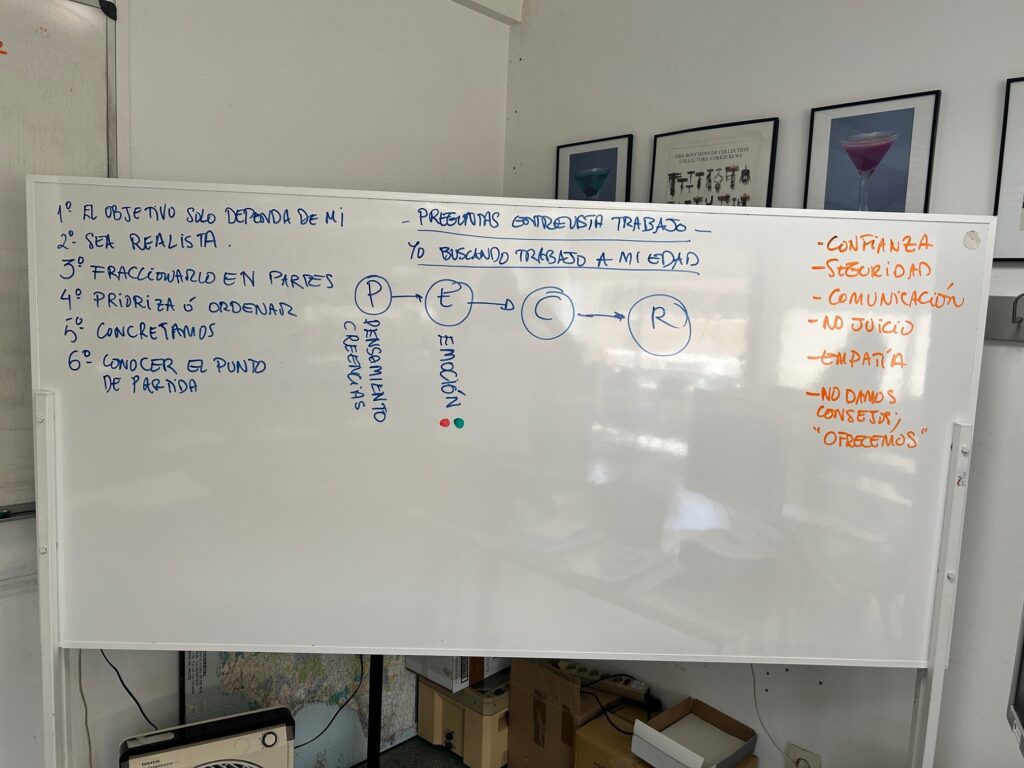 1º EL OBJETIVO SOLO DEPENDA DE MI
2º- SEA REALISTA.
3º FRACCIONARLO EN PARTES
4º PRIORIZA Ó ORDENAR
5º- CONCRETAMOS
6º- CONOCER EL PUNTO
DE PARTIDA
- PREGUNTAS ENTREVISTA TRABAJO -
YO BUSCANDO TRABAJO A MI EDAD
P E C R
PENSAMIENTO
CREENCIAS
EMOCIÓN
- CONFIANZA
- SEGURIDAD
- COMUNICACIÓN
- NO JUICIO
- EMPATÍA
- NO DAMOS
CONSEJOS,
"OFRECEMOS"
TIRE-BOUCHONS DE COLLECTION
COLLECTORS' CORKSCREWS